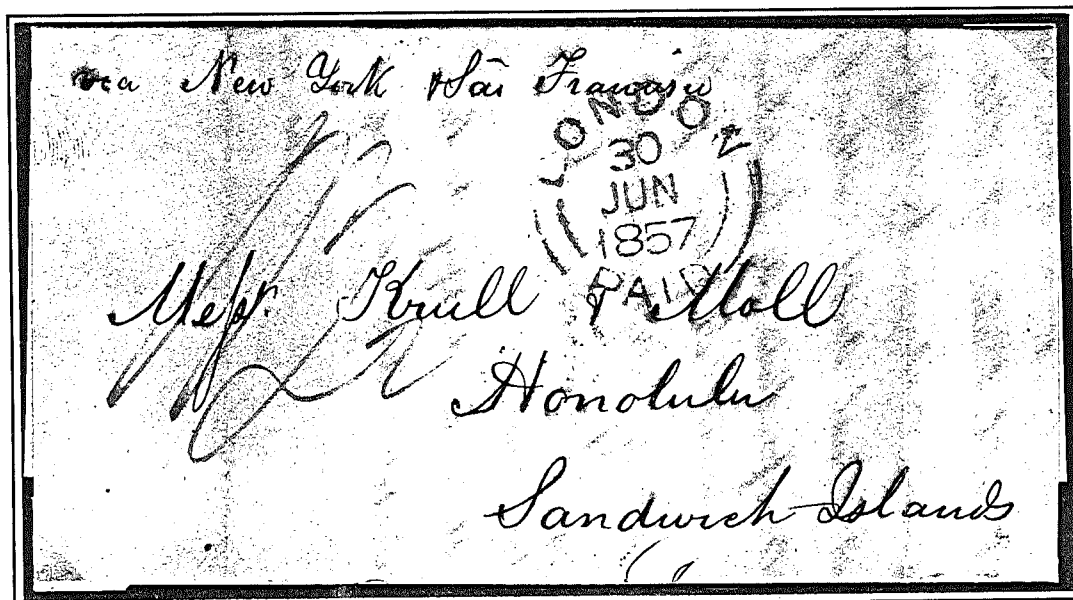 via New York & San Francisco
LONDON
30
JUN
1857
PAID
Messr. Krull & Moll
Honolulu
Sandwich Islands